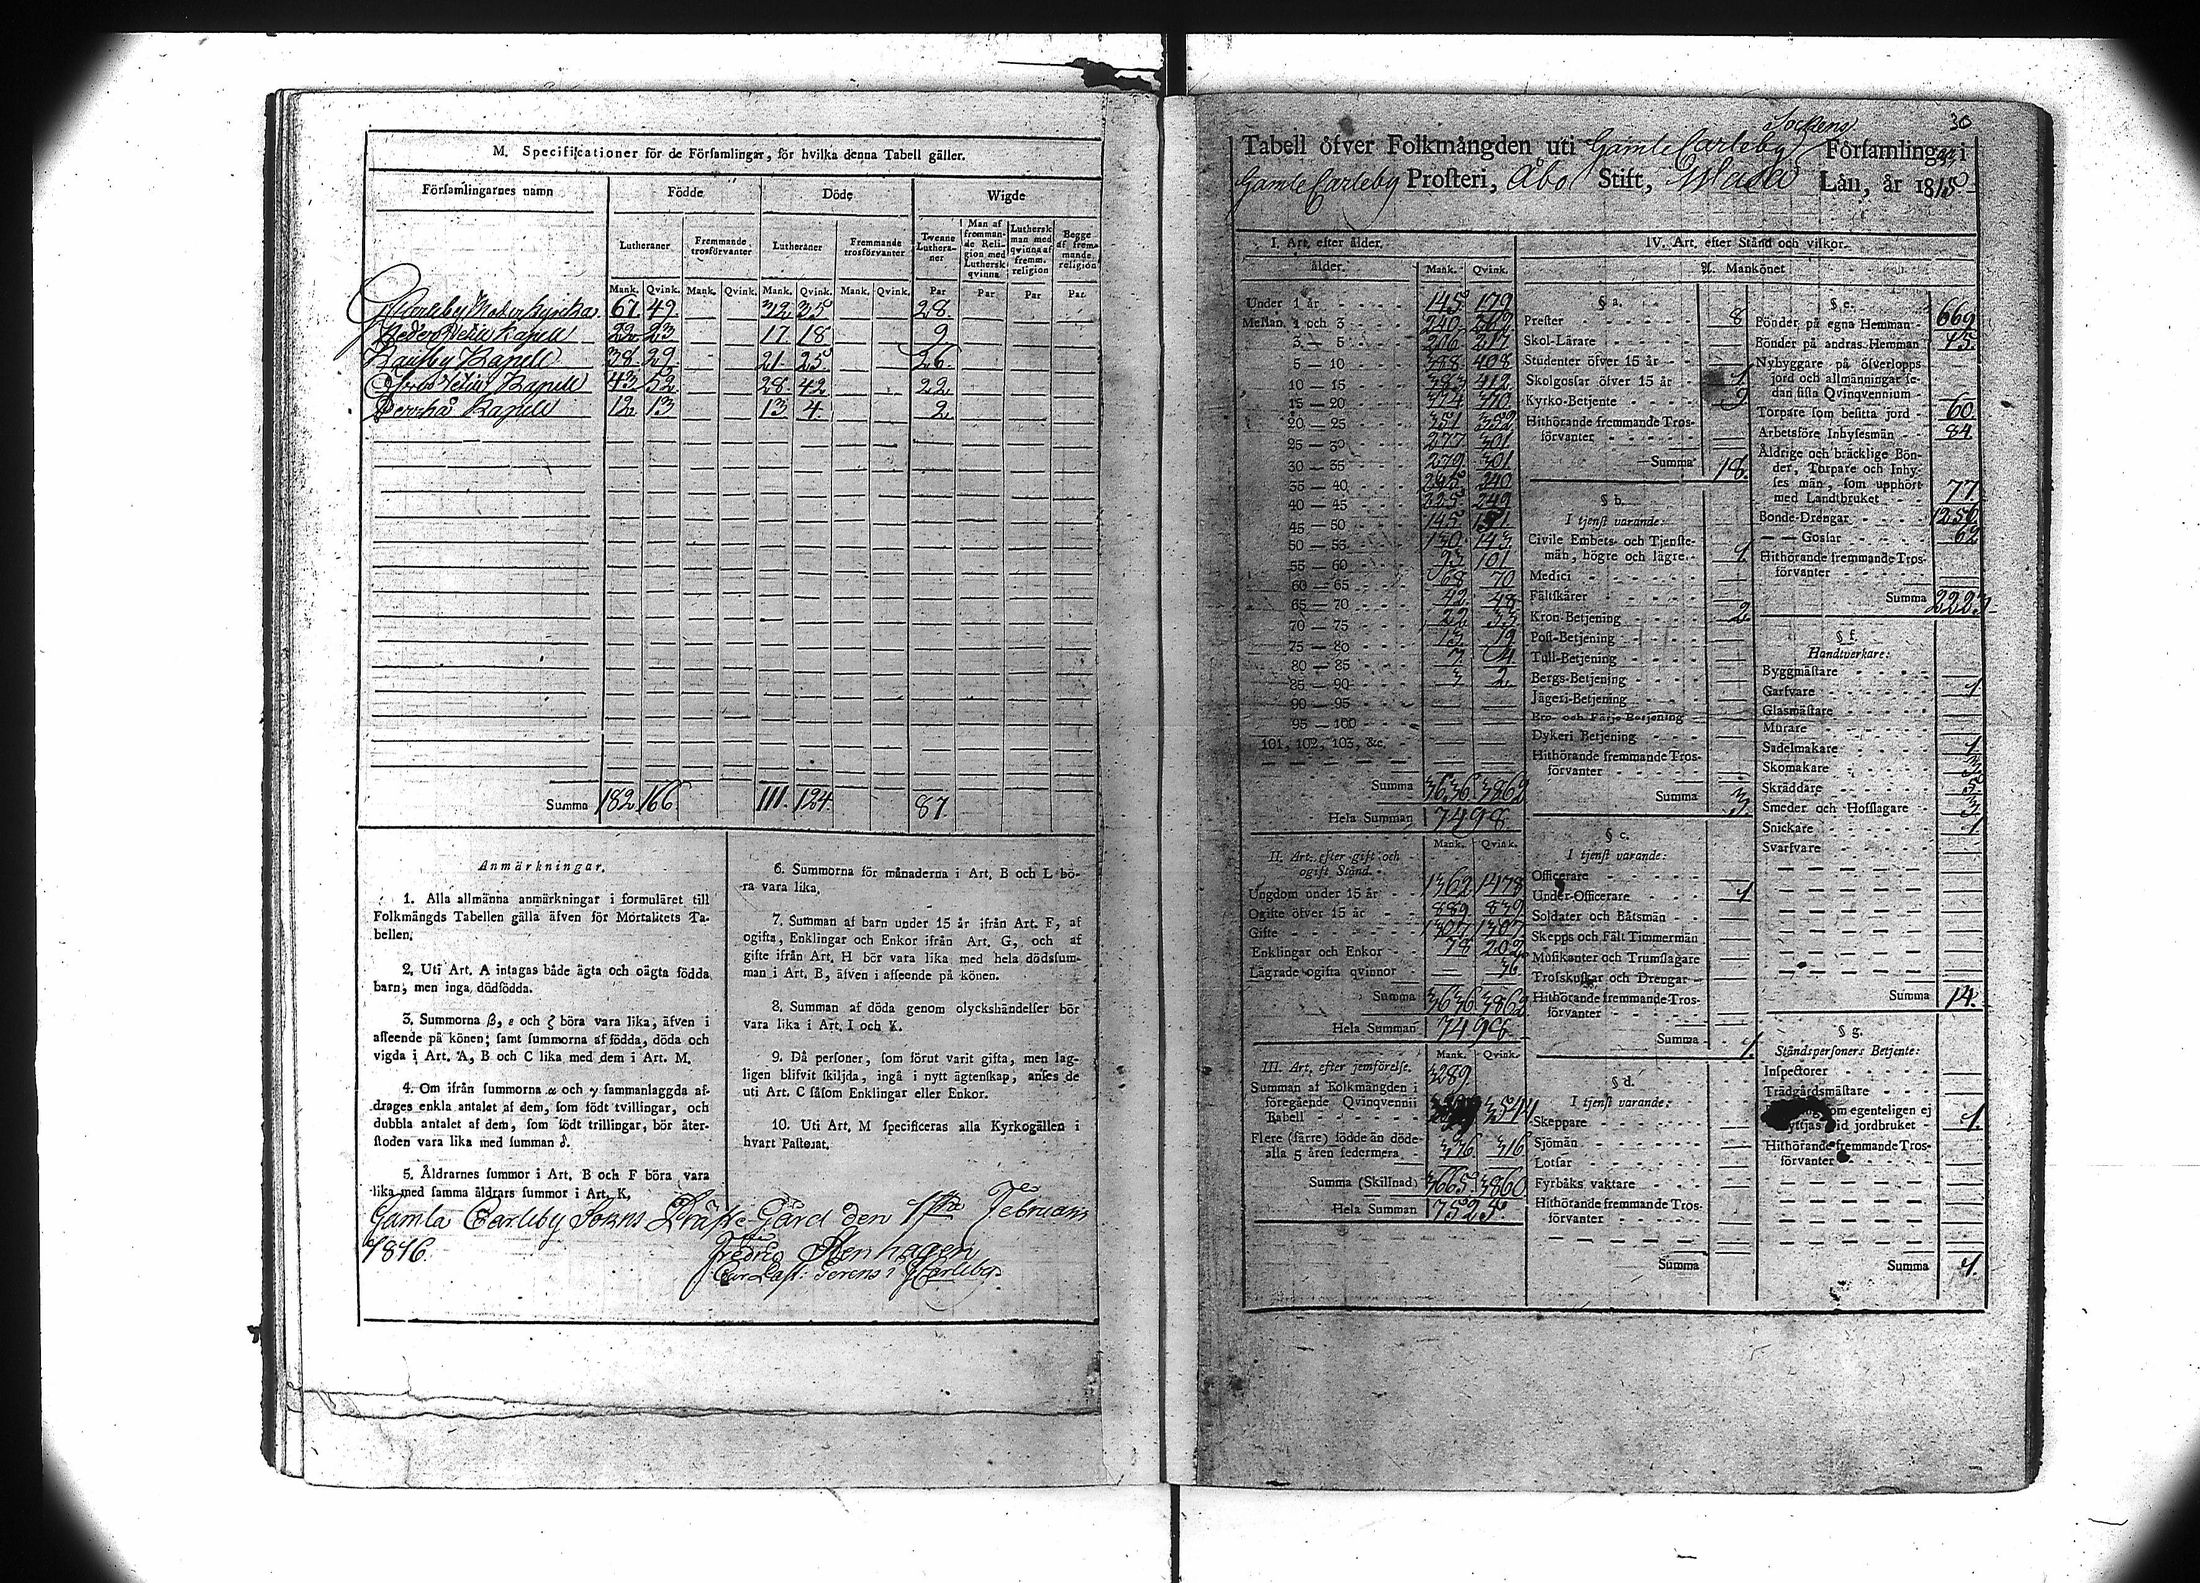 M. Specificationer för de Församlingar, för hvilka denna Tabell gäller.
Församlingarnes namn Födde Döde Wigde
Lutheraner Fremmande trosförvanter Lutheraner Fremmande trosförvanter Tvenne Lutheraner Man af fremmande Religion med Luthersk qvinna Luthersk man med qvinna af fremm. religion Begge af fremmande religion
Mank. Qvink. Mank. Qvink. Mank. Qvink. Mank. Qvink. Par Par Par Par
GCarleby Moderkyrka 61 49 32 35 28
Neder Vetil Kapell 22 23 17 18 9
Kaustby Kapell 38 29 21 25 26
Öfver Vetil Kapell 43 52 28 42 22
Perrhå Kapell 12 13 13 4 2
Summa 182 166 111 124 87
Anmärkningar.
1. Alla allmänna anmärkningar i formuläret till
Folkmängds Tabellen gälla äfven för Mortalitets Ta-
bellen.
2. Uti Art. A intagas både ägta och oägta födda
barn, men inga dödfödda.
3. Summorna β, ε och ζ böra vara lika, äfven i
afseende på könen; samt summorna af födda, döda och
vigda i Art. A, B och C lika med dem i Art. M.
4. Om ifrån summorna α och γ sammanlaggda af-
drages enkla antalet af dem, som födt tvillingar, och
dubbla antalet af dem, som födt trillingar, bör åter-
stoden vara lika med summan δ.
5. Åldrarnes summor i Art. B och F böra vara
lika med samma åldrars summor i Art. K.
6. Summorna för månaderna i Art. B och L bö-
ra vara lika.
7. Summan af barn under 15 år ifrån Art. F, af
ogifta, Enklingar och Enkor ifrån Art. G, och af
gifte ifrån Art. H bör vara lika med hela dödssum-
man i Art. B, äfven i afseende på könen.
8. Summan af döda genom olyckshändelser bör
vara lika i Art. I och K.
9. Då personer, som förut varit gifta, men lag-
ligen blifvit skiljda, ingå i nytt ägtenskap, anses de
uti Art. C såsom Enklingar eller Enkor.
10. Uti Art. M specificeras alla Kyrkogällen i
hvart Pastorat.
Gamla Carleby Sokns Präste-Gård den 1sta Februarii
1816.
Fredric Stenhagen
30
Sockens
Tabell öfver Folkmängden uti Gamle Carleby Församlingar i
Gamle Carleby Prosteri, Åbo Stift, Wasa Län, år 1815
I. Art. efter ålder.
ålder. Mank. Qvink.
Under 1 år 145 179
Mellan 1 och 3 240
3 — 5 206 217
5 — 10 388 408
10 — 15 383 412
15 — 20 374 370
20 — 25 351 352
25 — 30 277 301
30 — 35 279 301
35 — 40 245 240
40 — 45 225 249
45 — 50 145
50 — 55 130 143
55 — 60 93 101
60 — 65 68 70
65 — 70 42 48
70 — 75 22 33
75 — 80 13 19
80 — 85 7 4
85 — 90 3 2
90 — 95
95 — 100
101, 102, 103, &c.
Summa 3636 3862
Hela Summan 7498
Mank. Qvink.
II. Art. efter gift och
ogift Stånd.
Ungdom under 15 år 1362 1478
Ogifte öfver 15 år 889 839
Gifte 1307 1307
Enklingar och Enkor 78 202
Lägrade ogifta qvinnor — 36
Summa 3636 3862
Hela Summan 7498
Mank. Qvink.
III. Art. efter jemförelse.
Summan af Folkmängden i
föregående Qvinqvennii
Tabell 3289 3544
Flere (färre) födde än döde
alla 5 åren sedermera 376 316
Summa (Skillnad) 3665 3860
Hela Summan 7525
IV. Art. efter Stånd och vilkor.
A. Mankönet
§ a.
Prester 8
Skol-Lärare
Studenter öfver 15 år
Skolgossar öfver 15 år 1
Kyrko-Betjente 9
Hithörande fremmande Tros-
förvanter
Summa 18
§ b.
I tjenst varande:
Civile Embets- och Tjenste-
män, högre och lägre 1
Medici
Fältskärer
Kron-Betjening 2
Post-Betjening
Tull-Betjening
Bergs-Betjening
Jägeri-Betjening
Bro- och Färje-Betjening
Dykeri Betjening
Hithörande fremmande Tros-
förvanter
Summa 3
§ c.
I tjenst varande:
Officerare
Under-Officerare 1
Soldater och Båtsmän
Skepps och Fält Timmermän
Musikanter och Trumslagare
Trosskuskar och Drengar
Hithörande fremmande Tros-
förvanter
Summa 1
§ d.
I tjenst varande:
Skeppare
Sjömän
Lotsar
Fyrbåks vaktare
Hithörande fremmande Tros-
förvanter
Summa
§ e.
Bönder på egna Hemman 669
Bönder på andras Hemman 15
Nybyggare på öfverlopps
jord och allmänningar se-
dan sista Qvinqvennium
Torpare som besitta jord 60
Arbetsföre Inhysesmän 84
Åldrige och bräcklige Bön-
der, Torpare och Inhy-
ses män, som upphört
med Landtbruket 77
Bonde-Drengar 1256
— — Gossar 62
Hithörande fremmande Tros-
förvanter
Summa 2223
§ f.
Handtverkare:
Byggmästare
Garfvare 1
Glasmästare
Murare
Sadelmakare 1
Skomakare 3
Skräddare 5
Smeder och Hofslagare 3
Snickare 1
Svarfvare
Summa 14
§ g.
Ståndspersoners Betjente:
Inspectorer
Trädgårdsmästare
som egenteligen ej
nyttjas vid jordbruket 1
Hithörande fremmande Tros-
förvanter
Summa 1